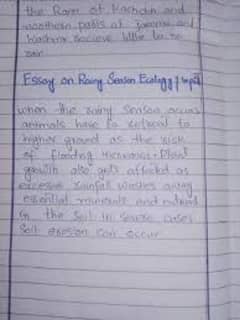 the Rann of Kachchh and
northern parts of and
receive little to no
rain
Essay on Rainy Season Ecology
when the rainy season occurs
animals have to retreat to
higher ground as the risk
of flooding increases. Plant
growth also gets affected as
excessive rainfall washes away
essential minerals and
in the soil in severe cases
Soil erosion can occur